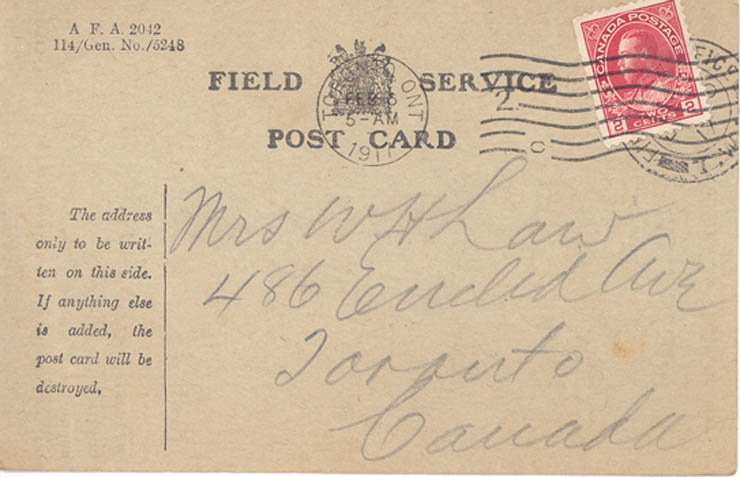 A F. A. 2042
114/Gen. No./5248
FIELD SERVICE
POST CARD
TORONTO ONT
FEB 5
5-AM
1917
2
CANADA POSTAGE
2 TWO CENTS 2
The address
only to be writ-
ten on this side.
If anything else
is added, the
post card will be
destroyed.
Mrs W H Law
486 Euclid Ave
Toronto
Canada